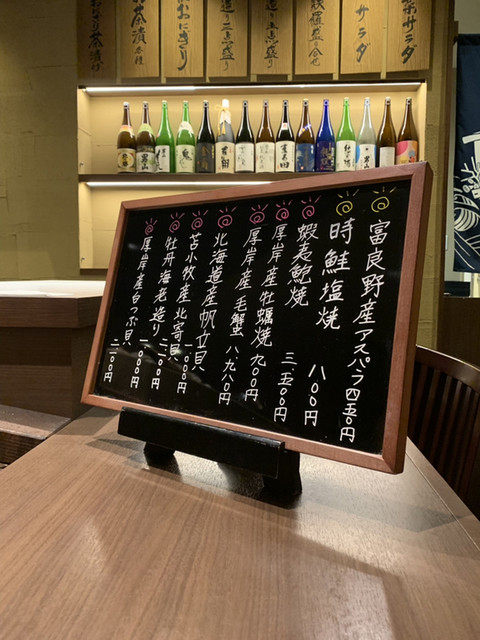 サラダ
盛り合せ
造り五点盛り
造り三点盛り
おにぎり
お茶漬
富良野産アスパラ 四五〇円
時鮭塩焼 八〇〇円
蝦夷鮑焼 三、五〇〇円
厚岸産牡蠣焼 九〇〇円
厚岸産毛蟹 八、九八〇円
北海道産帆立貝 一、〇〇〇円
苫小牧産北寄貝 二、〇〇〇円
牡丹海老造り 一、〇〇〇円
厚岸産白つぶ貝 二、〇〇〇円